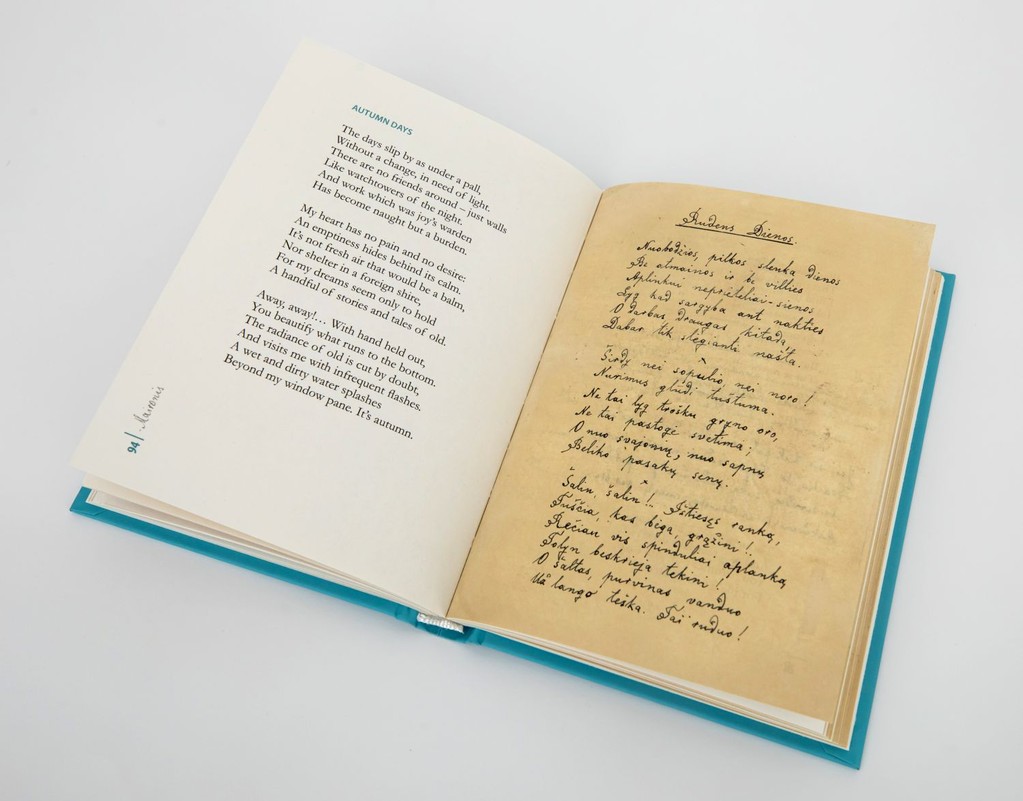 AUTUMN DAYS
The days slip by as under a pall,
Without a change, in need of light.
There are no friends around – just walls
Like watchtowers of the night.
And work which was joy's warden
Has become naught but a burden.
My heart has no pain and no desire:
An emptiness hides behind its calm.
It's not fresh air that would be a balm,
Nor shelter in a foreign shire,
For my dreams seem only to hold
A handful of stories and tales of old.
Away, away!… With hand held out,
You beautify what runs to the bottom.
The radiance of old is cut by doubt,
And visits me with infrequent flashes.
A wet and dirty water splashes
Beyond my window pane. It's autumn.
94 | Maironis
Rudens Dienos.
Nuobodžios, pilkos slenka dienos
Be atmainos ir be vilties
Aplinkui neprieteliai-sienos
Lyg kad sargyba ant nakties
O darbas, draugas kitados,
Dabar tik slegianti našta.
Širdį nei sopulio, nei noro!
Nurimus glūdi tuštuma.
Ne tai lyg trokšu gryno oro,
Ne tai pastogė svetima;
O nuo svajonių, nuo sapnų
Beliko pasakų senų.
Šalin, šalin!! Ištiesęs ranką,
Tuščia, kas bėga, grąžini!
Rečiau vis spinduliai aplanko,
Tolyn beskrieja tekini!
O šaltas, purvinas vanduo
Už lango teška. Tai ruduo!